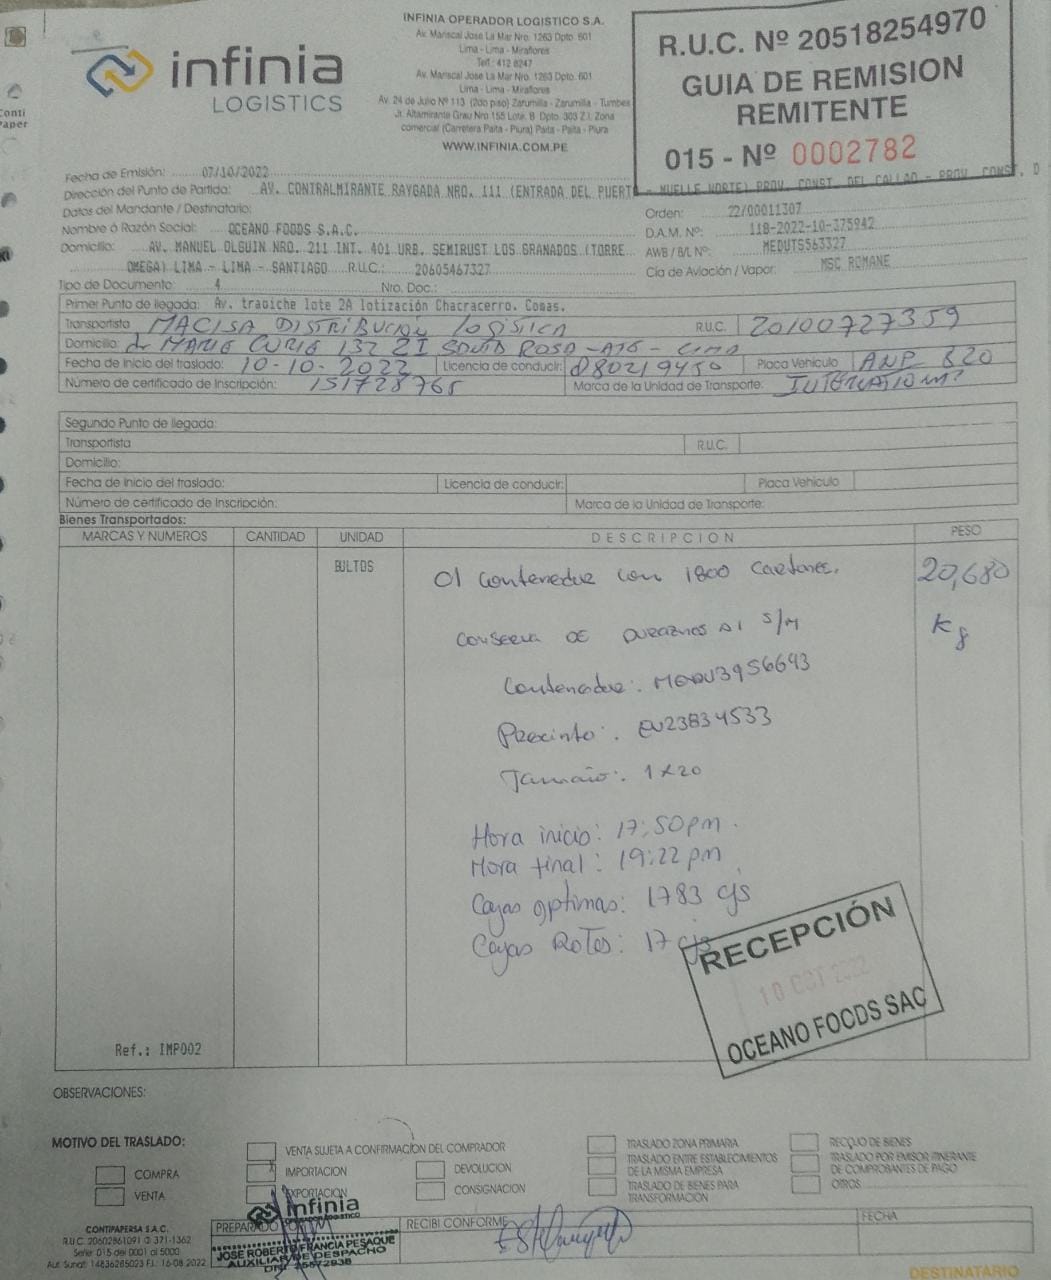 infinia
LOGISTICS
INFINIA OPERADOR LOGISTICO S.A.
Av. Mariscal Jose La Mar Nro. 1263 Dpto. 601
Lima - Lima - Miraflores
Telf.: 412 8247
Av. Mariscal Jose La Mar Nro. 1263 Dpto. 601
Lima - Lima - Miraflores
Av. 24 de Julio Nº 113 (2do piso) Zarumilla - Zarumilla - Tumbes
Jr. Altamirante Grau Nro 155 Lote. B Dpto. 303 Z.I. Zona
comercial (Carretera Paita - Piura) Paita - Paita - Piura
WWW.INFINIA.COM.PE
R.U.C. Nº 20518254970
GUIA DE REMISION
REMITENTE
015 - Nº 0002782
Conti
Paper
Fecha de Emisión: 07/10/2022
Dirección del Punto de Partida: AV. CONTRALMIRANTE RAYGADA NRO. 111 (ENTRADA DEL PUERTO - MUELLE NORTE) PROV. CONST. DEL CALLAO - PROV. CONST. D
Datos del Mandante / Destinatario:
Orden: 22/00011307
Nombre ó Razón Social: OCEANO FOODS S.A.C.
D.A.M. Nº: 118-2022-10-375942
Domicilio: AV. MANUEL OLGUIN NRO. 211 INT. 401 URB. SEMIRUST LOS GRANADOS (TORRE
AWB / B/L Nº: MEDUTS563327
OMEGA) LIMA - LIMA - SANTIAGO R.U.C.: 20605467327
Cía de Aviación / Vapor: MSC ROMANE
Tipo de Documento: 4 Nro. Doc.:
Primer Punto de llegada: Av. trapiche lote 2A lotización Chacracerro. Comas.
Transportista MACISA DISTRIBUCION LOGISTICA R.U.C. 20100727359
Domicilio: MARIE CURIE 132 ZI SANTA ROSA - ATE - LIMA
Fecha de inicio del traslado: 10-10-2022 Licencia de conducir: Q80219450 Placa Vehiculo ANP 820
Número de certificado de Inscripción: 151728765 Marca de la Unidad de Transporte: INTERNATIONAL
Segundo Punto de llegada:
Transportista R.U.C.
Domicilio:
Fecha de inicio del traslado: Licencia de conducir: Placa Vehiculo
Número de certificado de Inscripción: Marca de la Unidad de Transporte:
Bienes Transportados:
MARCAS Y NUMEROS CANTIDAD UNIDAD DESCRIPCION PESO
BULTOS 01 Contenedor con 1800 Cartones. 20,680
Conserva DE DURAZNOS AL S/M Kg
Contenedor: MEDU3956643
Precinto: EU23834533
Tamaño: 1x20
Hora inicio: 17:50pm.
Hora final: 19:22 pm
Cajas optimas: 1783 cjs
Cajas Rotas: 17 cjs
RECEPCIÓN
10 OCT 2022
OCEANO FOODS SAC
Ref.: IMP002
OBSERVACIONES:
MOTIVO DEL TRASLADO:
COMPRA
VENTA
VENTA SUJETA A CONFIRMACION DEL COMPRADOR
IMPORTACION
EXPORTACION
DEVOLUCION
CONSIGNACION
TRASLADO ZONA PRIMARIA
TRASLADO ENTRE ESTABLECIMIENTOS
DE LA MISMA EMPRESA
TRASLADO DE BIENES PARA
TRANSFORMACIÓN
RECOJO DE BIENES
TRASLADO POR EMISOR ITINERANTE
DE COMPROBANTES DE PAGO
OTROS
CONTIPAPERSA S.A.C.
R.U.C. 20602861091 371-1362
Serie: 015 del 0001 al 5000
Aut. Sunat: 14836285023 F.I.: 16-08-2022
PREPARADO POR
infinia
JOSE ROBERTO FRANCIA PESAQUE
AUXILIAR DE DESPACHO
DNI: 25572938
RECIBI CONFORME
FECHA
DESTINATARIO